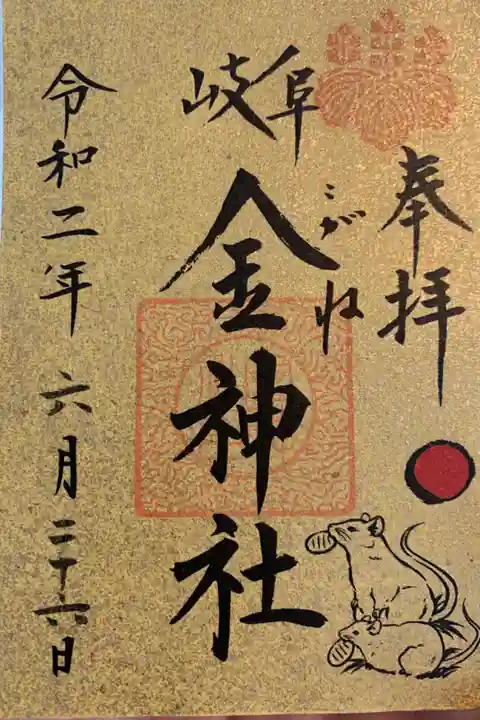 奉拝
岐阜
こがね
金神社
令和二年六月二十六日